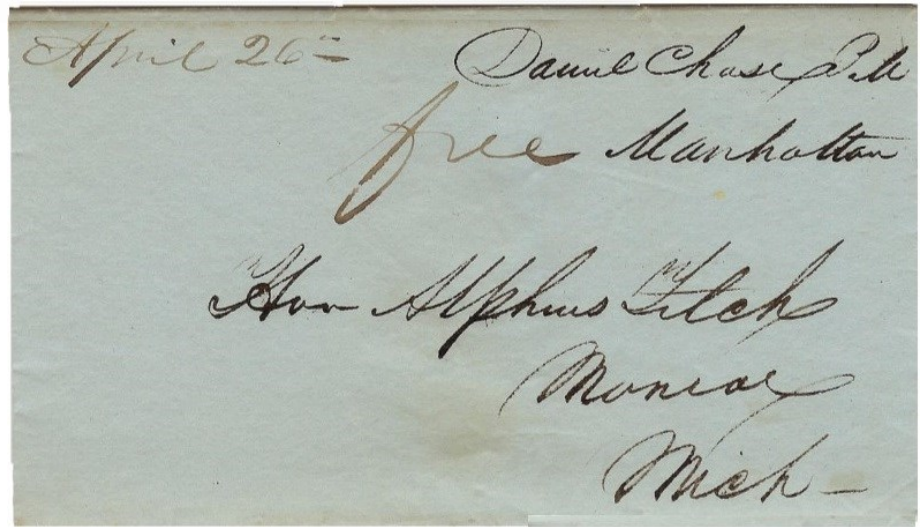 April 26th
Daniel Chase P.M
free Manhattan
Hon Alpheus Felch
Monroe
Mich -